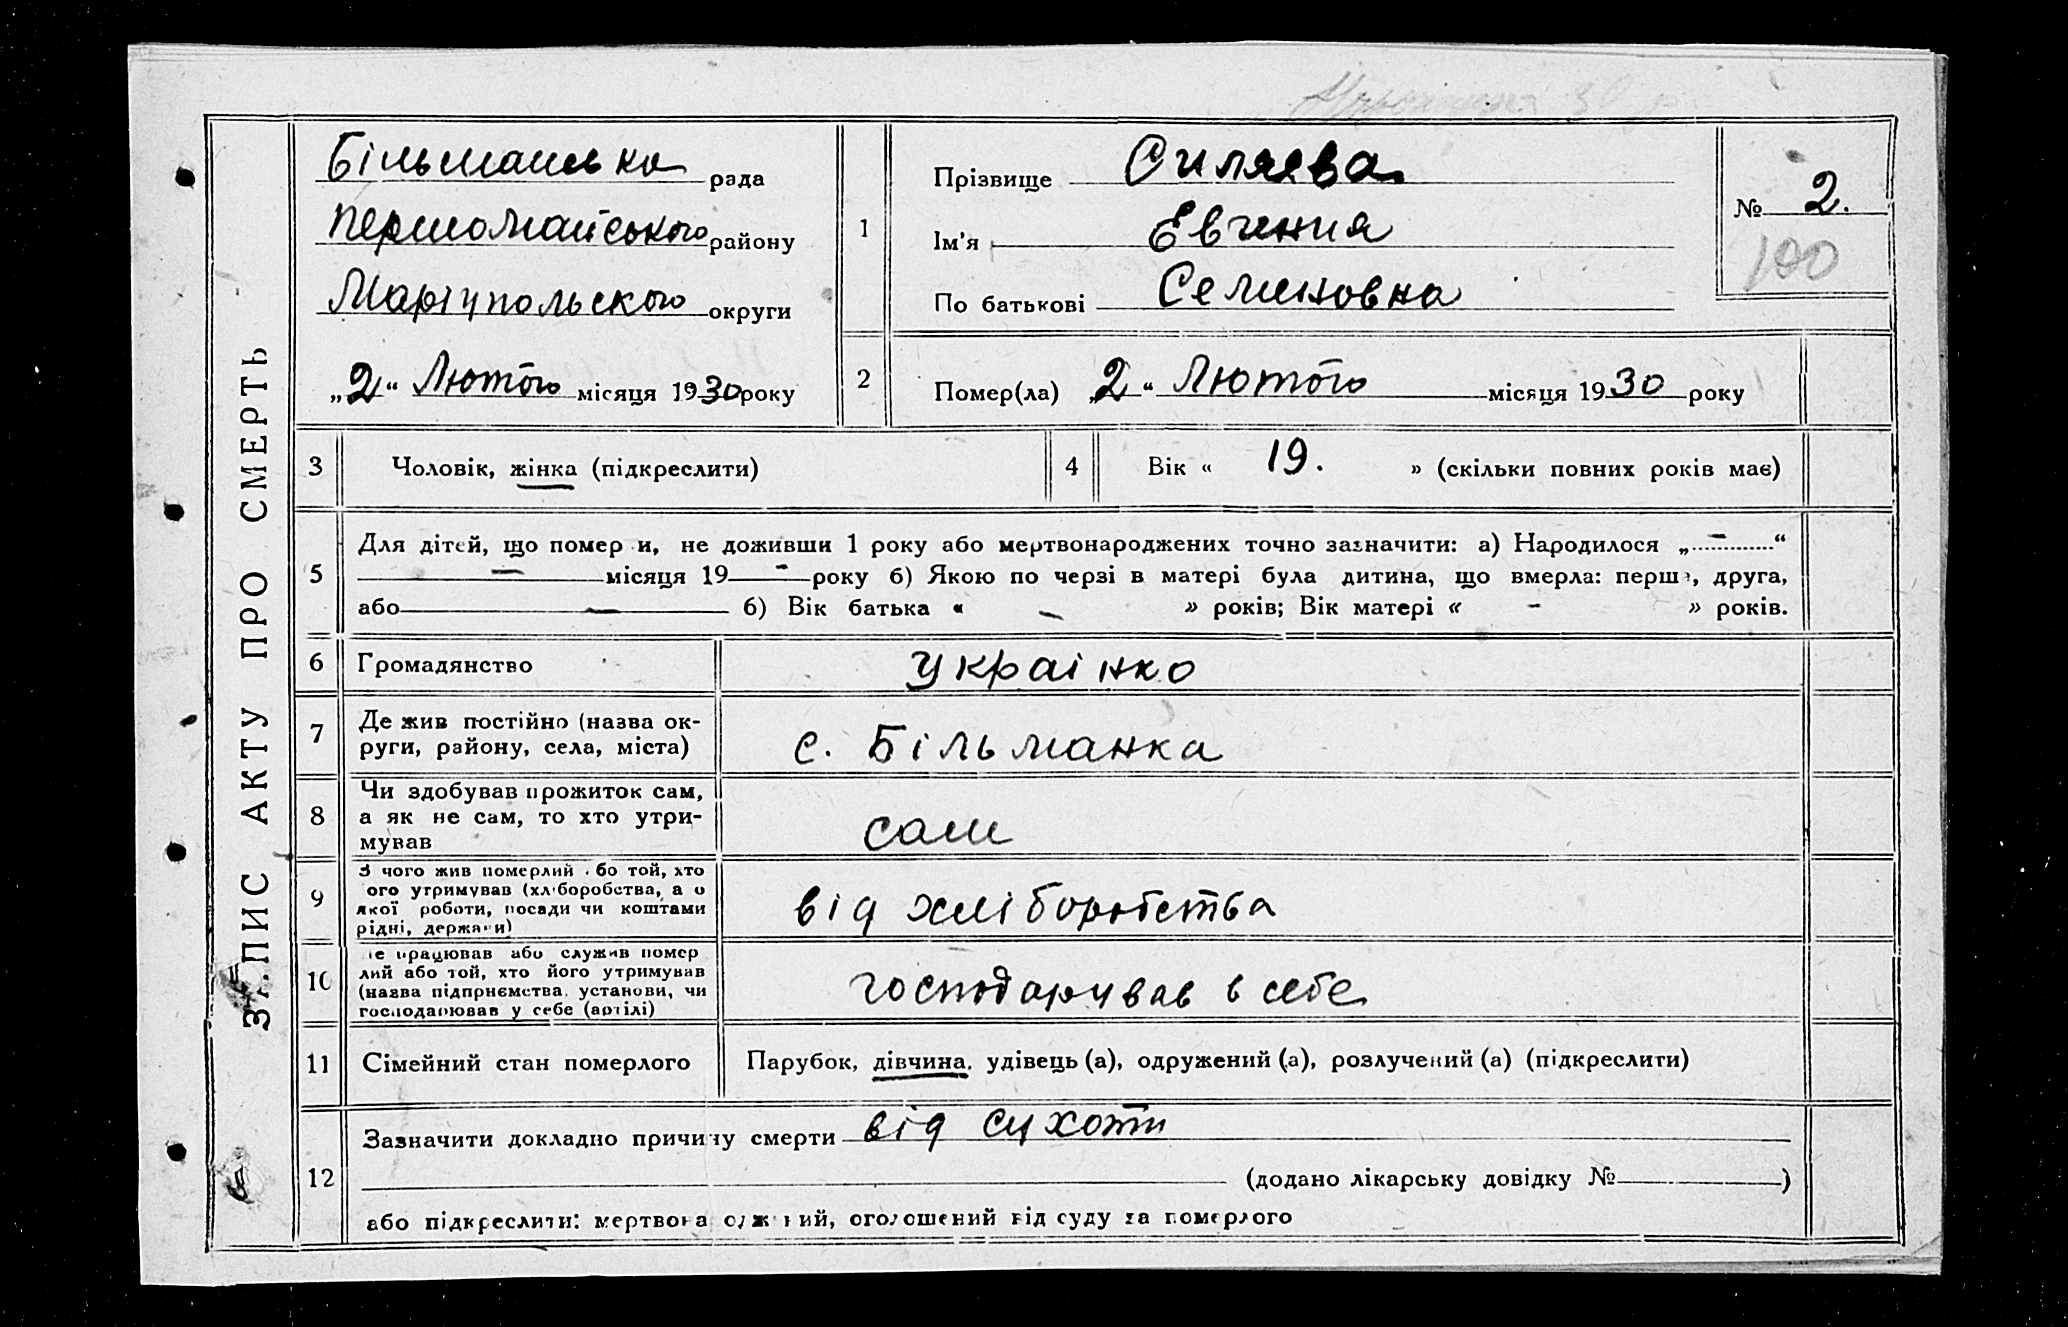 ЗАПИС АКТУ ПРО СМЕРТЬ
Більманська рада
Першомайського району
Маріупольского округи
„2“ Лютого місяця 1930 року
1
Прізвище Силяева
Ім'я Евгения
По батькові Семеновна
№ 2.
100
2
Помер(ла) „2“ Лютого місяця 1930 року
3 Чоловік, жінка (підкреслити)
4 Вік « 19. » (скільки повних років має)
5
Для дітей, що померли, не доживши 1 року або мертвонароджених точно зазначити: а) Народилося „ - “
- місяця 19 - року б) Якою по черзі в матері була дитина, що вмерла: перша, друга,
або - б) Вік батька « - » років; Вік матері « - » років.
6 Громадянство Українко
7
Де жив постійно (назва ок-
руги, району, села, міста)
с. Більманка
8
Чи здобував прожиток сам,
а як не сам, то хто утри-
мував
сам
9
З чого жив померлий або той, хто
його утримував (хліборобства, або
якої роботи, посади чи коштами
рідні, держави)
від хліборобства
10
Де працював або служив помер
лий або той, хто його утримував
(назва підприємства, установи, чи
господарював у себе (артілі)
господарував в себе
11 Сімейний стан померлого Парубок, дівчина, удівець (а), одружений (а), розлучений (а) (підкреслити)
12
Зазначити докладно причину смерти від сухоти
(додано лікарську довідку № )
або підкреслити: мертвонароджений, оголошений від суду за померлого